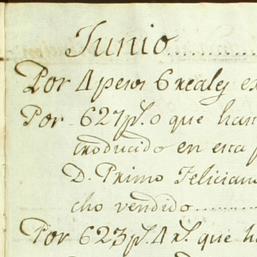 Junio
Por 4 pesos 6 reales ex
Por 627 p.s 0 que han
producido en esta p
D. Primo Felician
cho vendido
Por 623 p.s 4 r.s que h